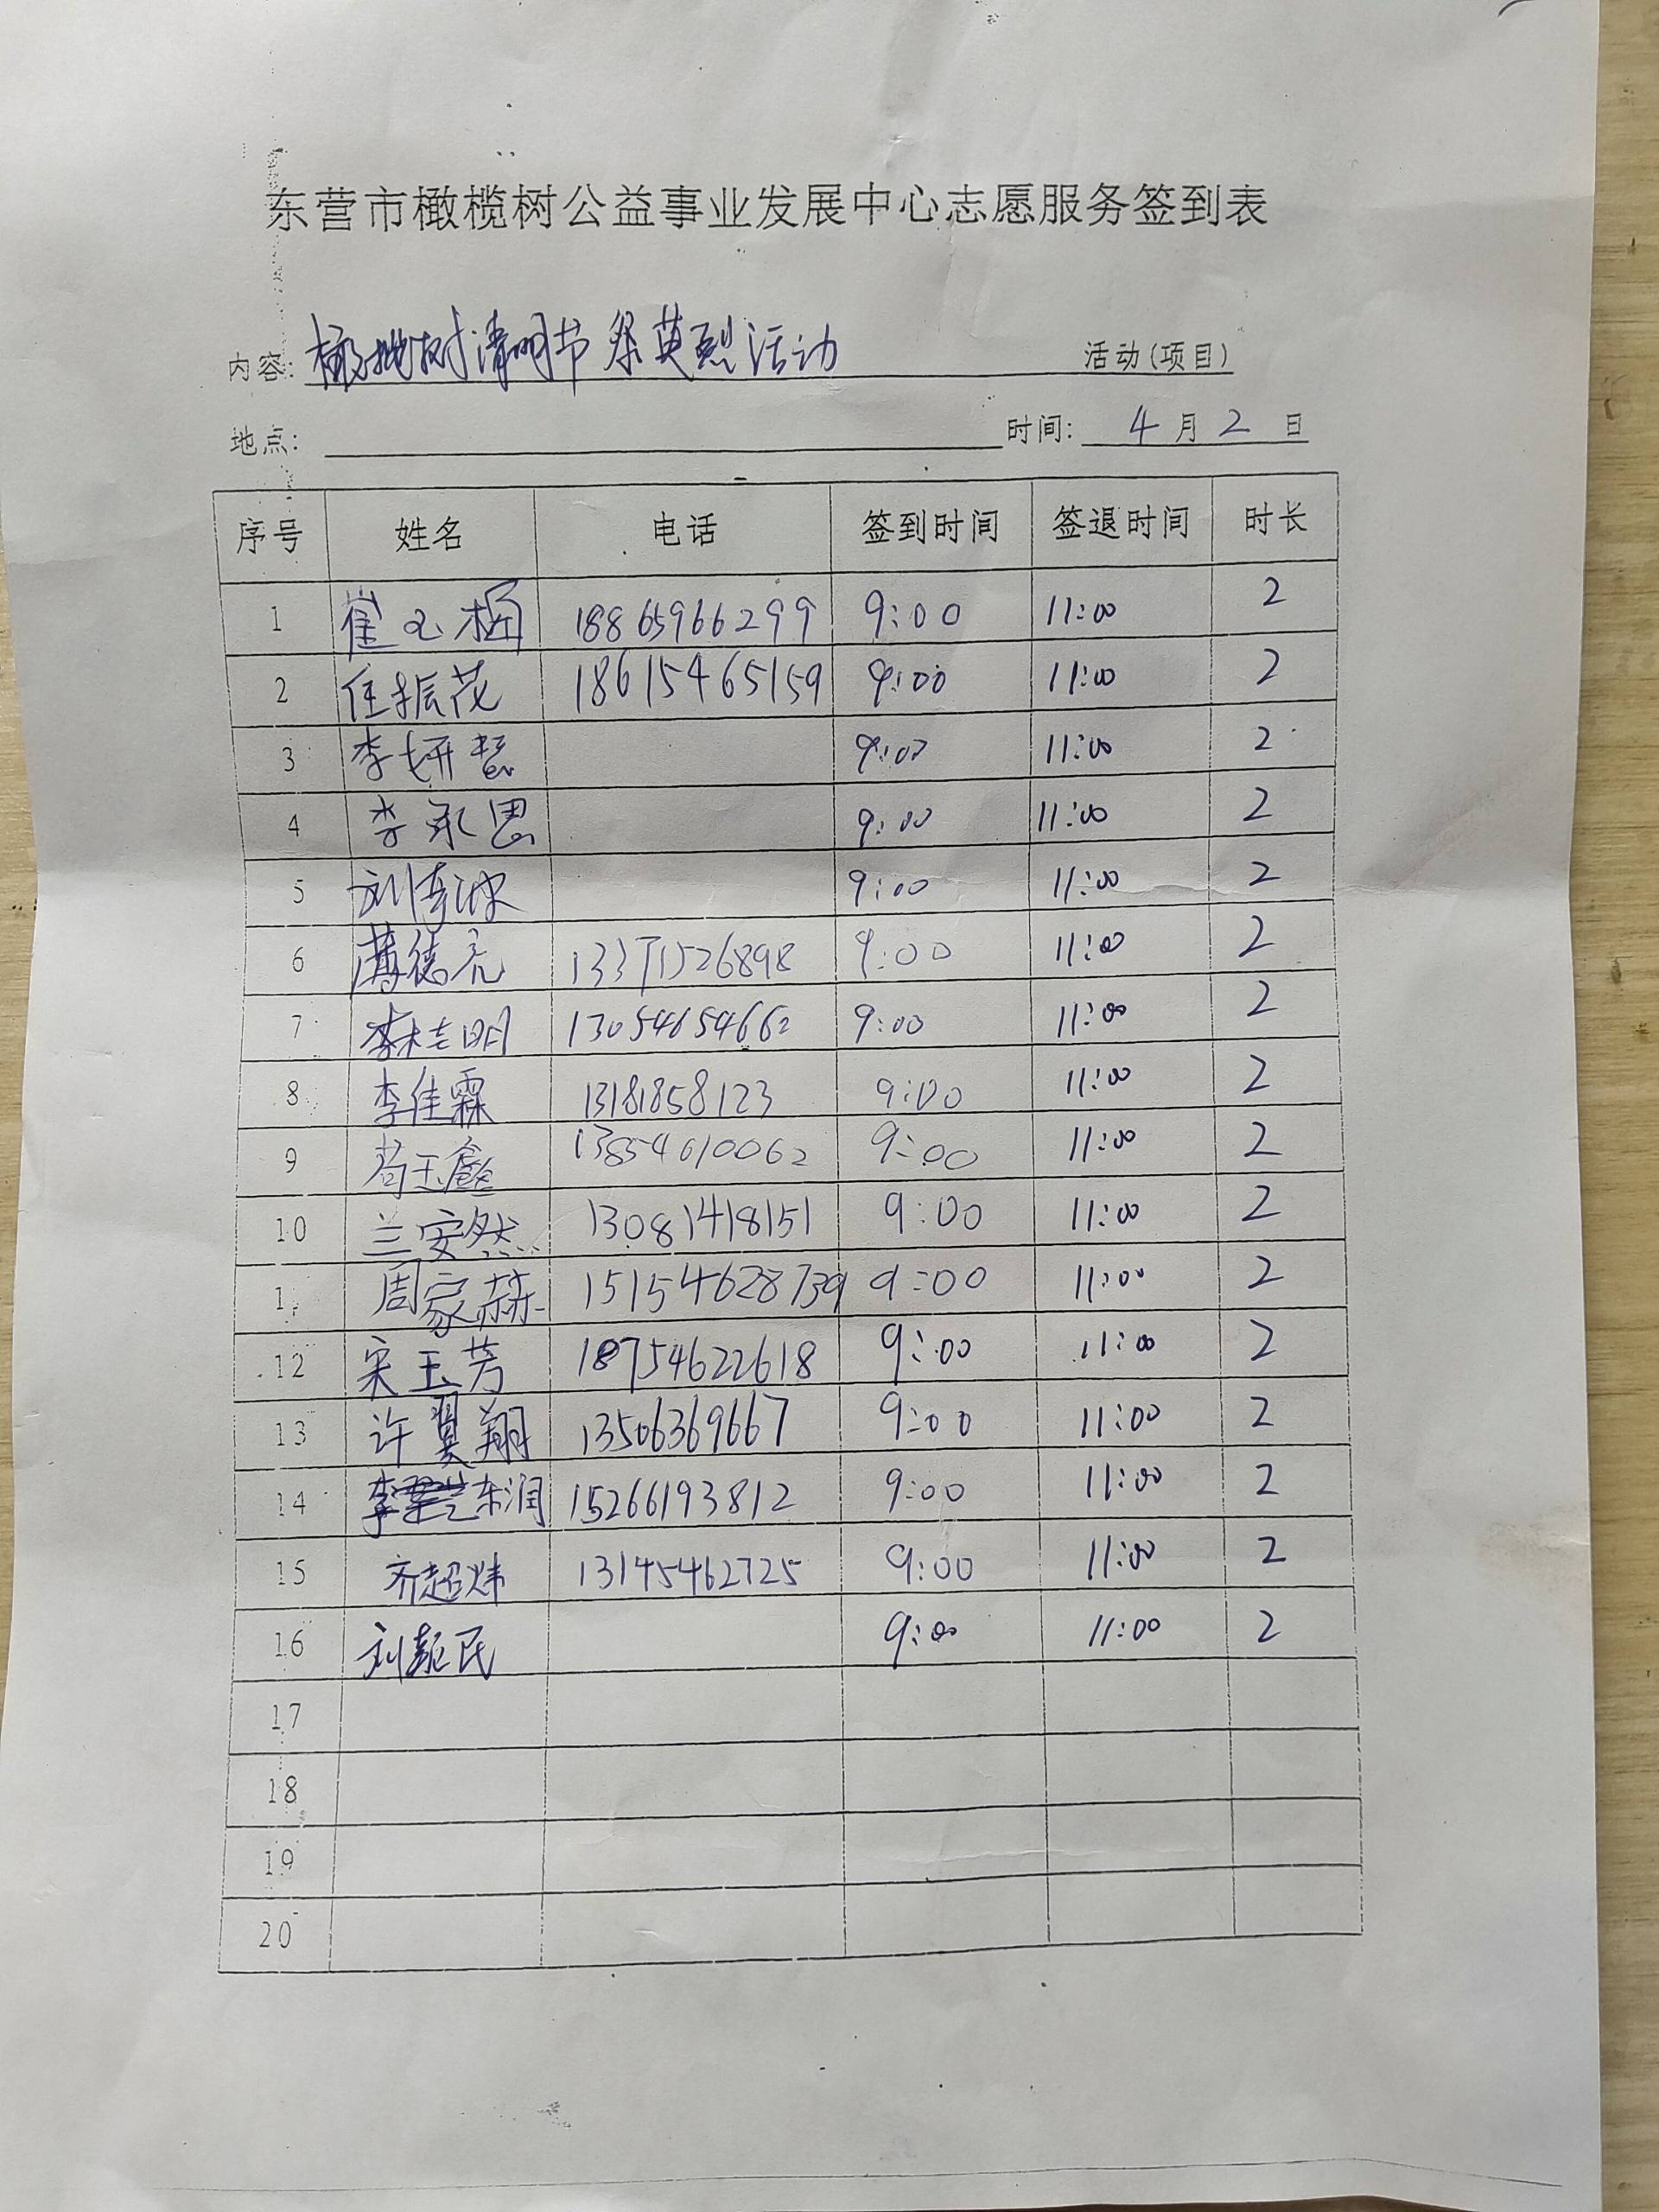 东营市橄榄树公益事业发展中心志愿服务签到表
内容: 橄榄树清明节祭英烈活动 活动(项目)
地点: 时间: 4月2日
序号 姓名 电话 签到时间 签退时间 时长
1 崔玉梅 18865966299 9:00 11:00 2
2 任振茂 18615465159 9:00 11:00 2
3 李妍慧 9:00 11:00 2
4 李承恩 9:00 11:00 2
5 刘 9:00 11:00 2
6 薄德亮 13371526898 9:00 11:00 2
7 李志明 13054654662 9:00 11:00 2
8 李佳霖 13181858123 9:00 11:00 2
9 苟玉鑫 13854610062 9:00 11:00 2
10 兰安然 13081418151 9:00 11:00 2
1 周家赫 15154628739 9:00 11:00 2
12 宋玉芳 18754622618 9:00 11:00 2
13 许翼翔 13506369667 9:00 11:00 2
14 李东润 15266193812 9:00 11:00 2
15 齐超炜 13145462725 9:00 11:00 2
16 刘民 9:00 11:00 2
17
18
19
20